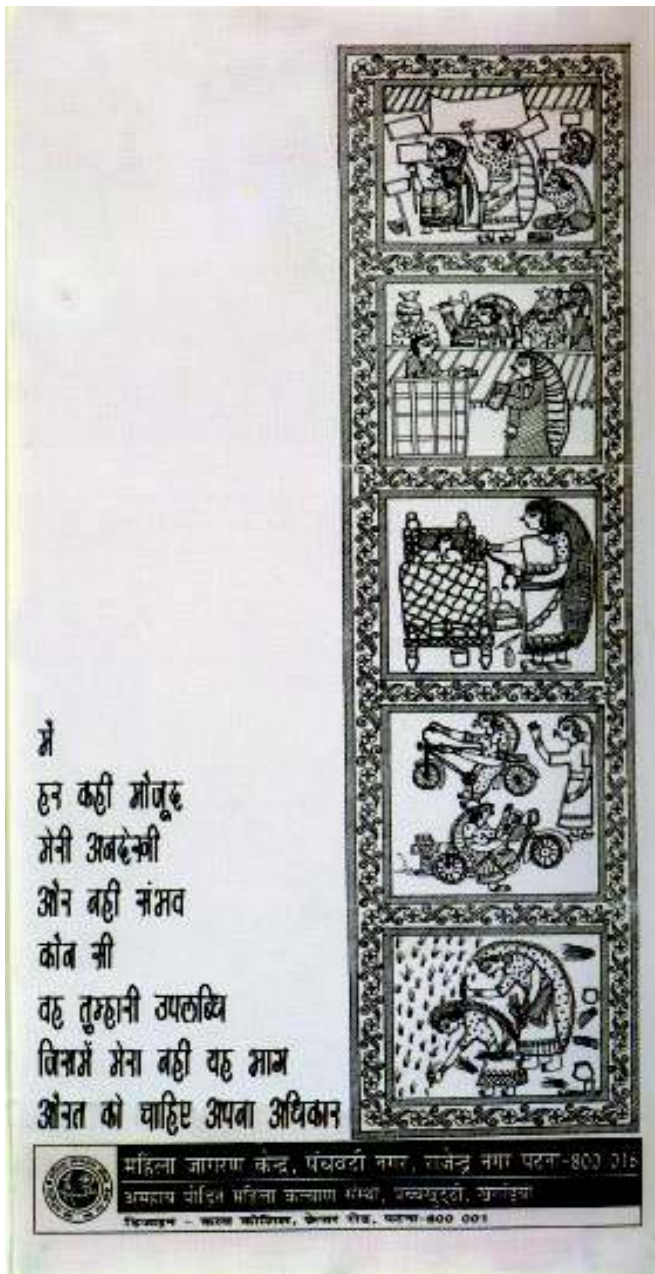 में
हर कही मौजूद
मेरी अनदेखी
और नही संभव
कौन सी
वह तुम्हारी उपलब्धि
जिसमें मेरा नही यह भाग
औरत को चाहिए अपना अधिकार
महिला जागरण केन्द्र, पंचवटी नगर, राजेन्द्र नगर पटना-800 016
असहाय पीड़ित महिला कल्याण संस्था,
डिजाइन - कला कोशिश, फ्रेजर रोड, पटना-800 001